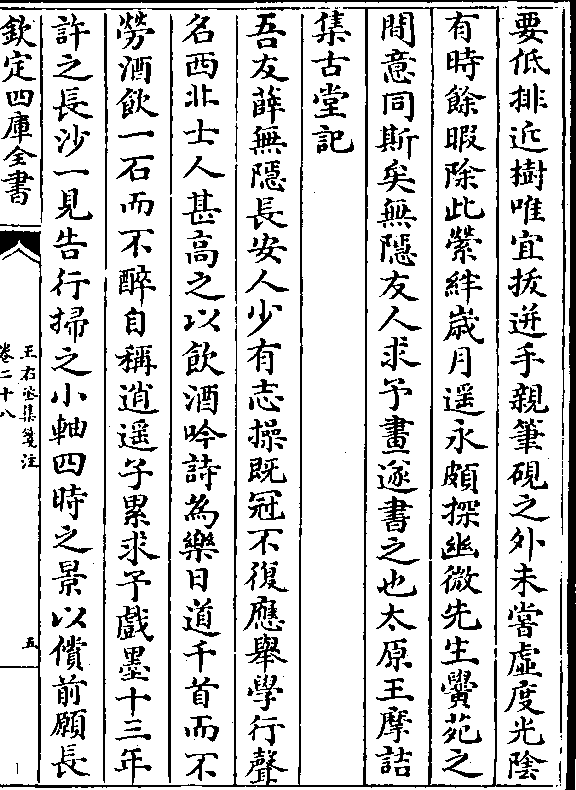 要低排近樹唯宜拔迸手親筆硯之外未嘗虛度光陰
有時餘暇除此縈絆歲月遥永頗探幽微先生黌苑之
間意同斯矣無隱友人求予畫遂書之也太原王摩詰
集古堂記
吾友薛無隱長安人少有志操既冠不復應舉學行聲
名西北士人甚高之以飲酒吟詩為樂日道千首而不
勞酒飲一石而不醉自稱逍遥子累求予戲墨十三年
許之長沙一見告行掃之小軸四時之景以償前願長
欽定四庫全書
王右丞集箋注
卷二十八
五